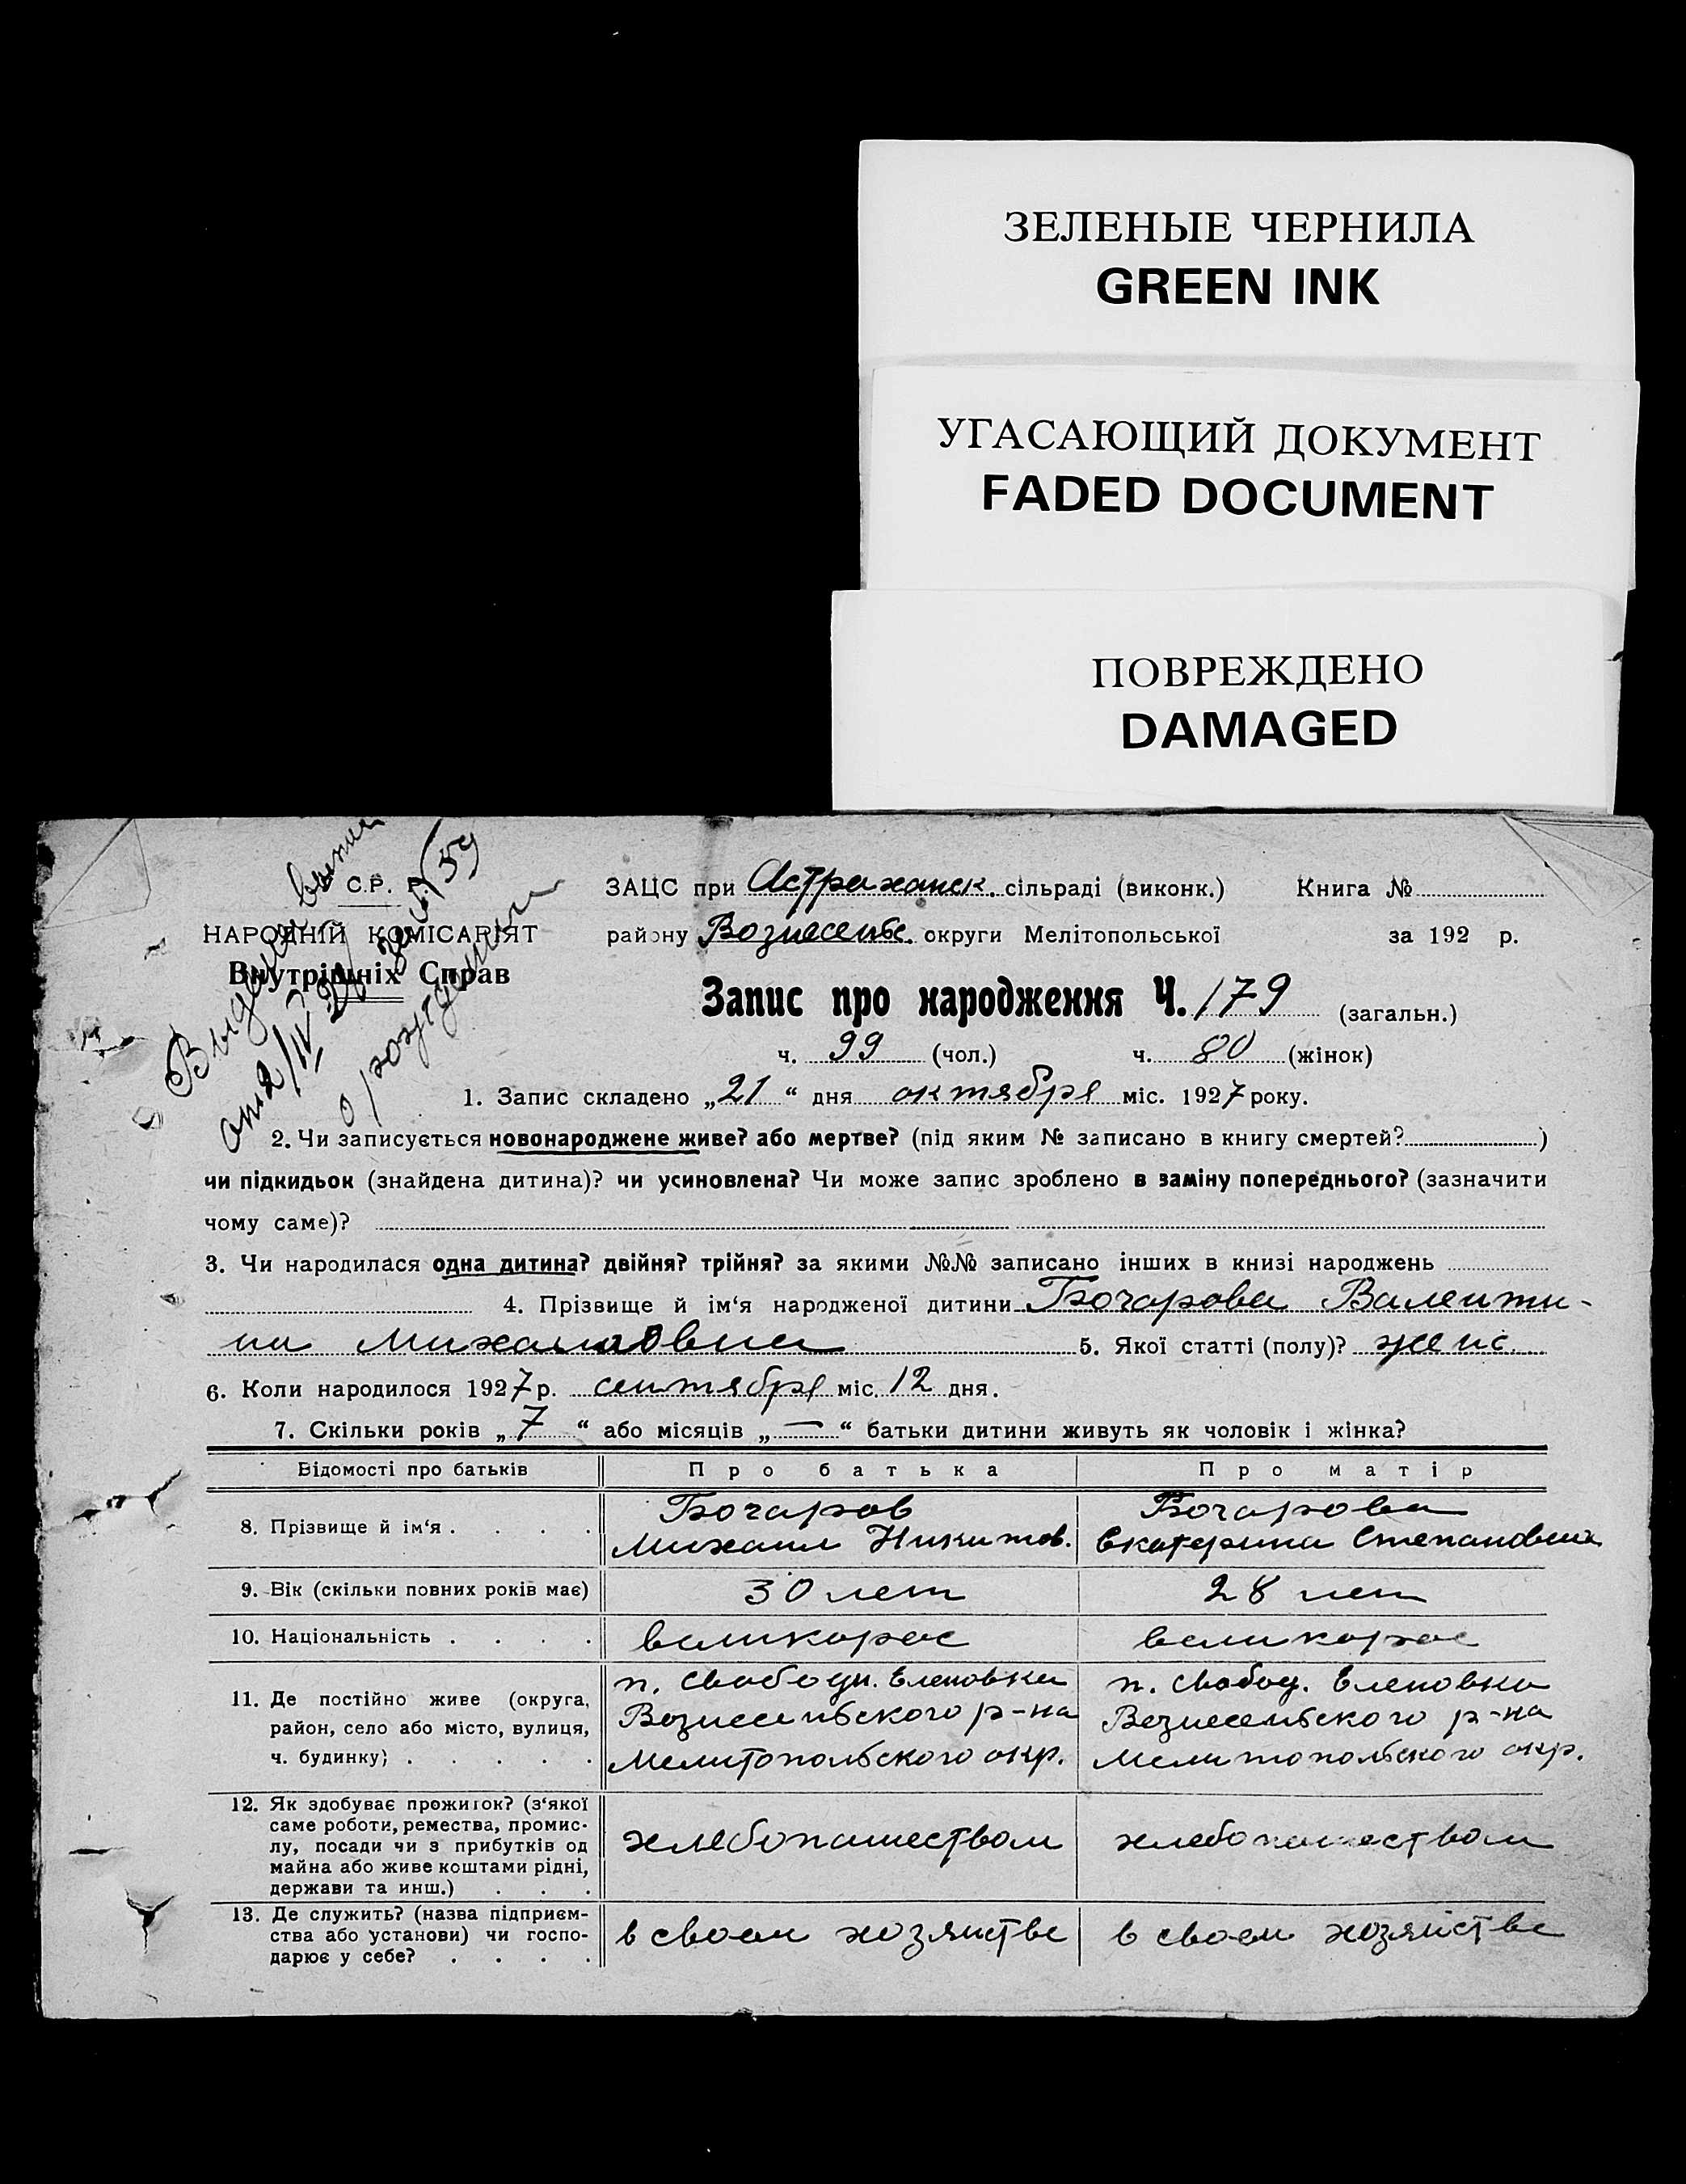 ЗЕЛЕНЫЕ ЧЕРНИЛА
GREEN INK
УГАСАЮЩИЙ ДОКУМЕНТ
FADED DOCUMENT
ПОВРЕЖДЕНО
DAMAGED
Выдана выпись
от 2/IV
о рождении
С.Р. Р.
НАРОДНІЙ КОМІСАРІЯТ
Внутрішніх Справ
ЗАЦС при Астраханск. сільраді (виконк.) Книга №
району Вознесенс. округи Мелітопольської за 192 р.
Запис про народження Ч. 179 (загальн.)
ч. 99 (чол.) ч. 80 (жінок)
1. Запис складено „21“ дня октября міс. 1927 року.
2. Чи записується новонароджене живе? або мертве? (під яким № записано в книгу смертей? )
чи підкидьок (знайдена дитина)? чи усиновлена? Чи може запис зроблено в заміну попереднього? (зазначити
чому саме)?
3. Чи народилася одна дитина? двійня? трійня? за якими №№ записано інших в книзі народжень
4. Прізвище й ім‘я народженої дитини Бочарова Валенти-
на Михайловна 5. Якої статті (полу)? женс.
6. Коли народилося 1927 р. сентября міс. 12 дня.
7. Скільки років „7“ або місяців „—“ батьки дитини живуть як чоловік і жінка?
Відомості про батьків Про батька Про матір
8. Прізвище й ім‘я . . . . Бочаров Бочарова
Михаил Никитов. Екатерина Степановна
9. Вік (скільки повних років має) 30 лет 28 лет
10. Національність . . . . великорос великорос
11. Де постійно живе (округа, п. Свободн. Еленовка п. Свобод. Еленовка
район, село або місто, вулиця, Вознесенського р-на Вознесенського р-на
ч. будинку) . . . . . Мелитопольского окр. Мелитопольского окр.
12. Як здобуває прожиток? (з‘якої
саме роботи, ремества, промис-
лу, посади чи з прибутків од хлебопашеством хлебопашеством
майна або живе коштами рідні,
держави та инш.) . . .
13. Де служить? (назва підприєм-
ства або установи) чи госпо- в своем хозяйстве в своем хозяйстве
дарює у себе? . . . .